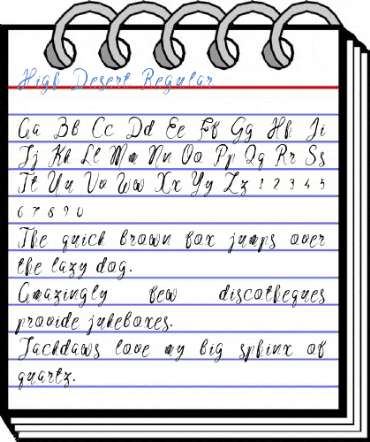 High Desert Regular
Aa Bb Cc Dd Ee Ff Gg Hh Ii
Jj Kk Ll Mm Nn Oo Pp Qq Rr Ss
Tt Uu Vv Ww Xx Yy Zz 1 2 3 4 5
6 7 8 9 0
The quick brown fox jumps over
the lazy dog.
Amazingly few discotheques
provide jukeboxes.
Jackdaws love my big sphinx of
quartz.